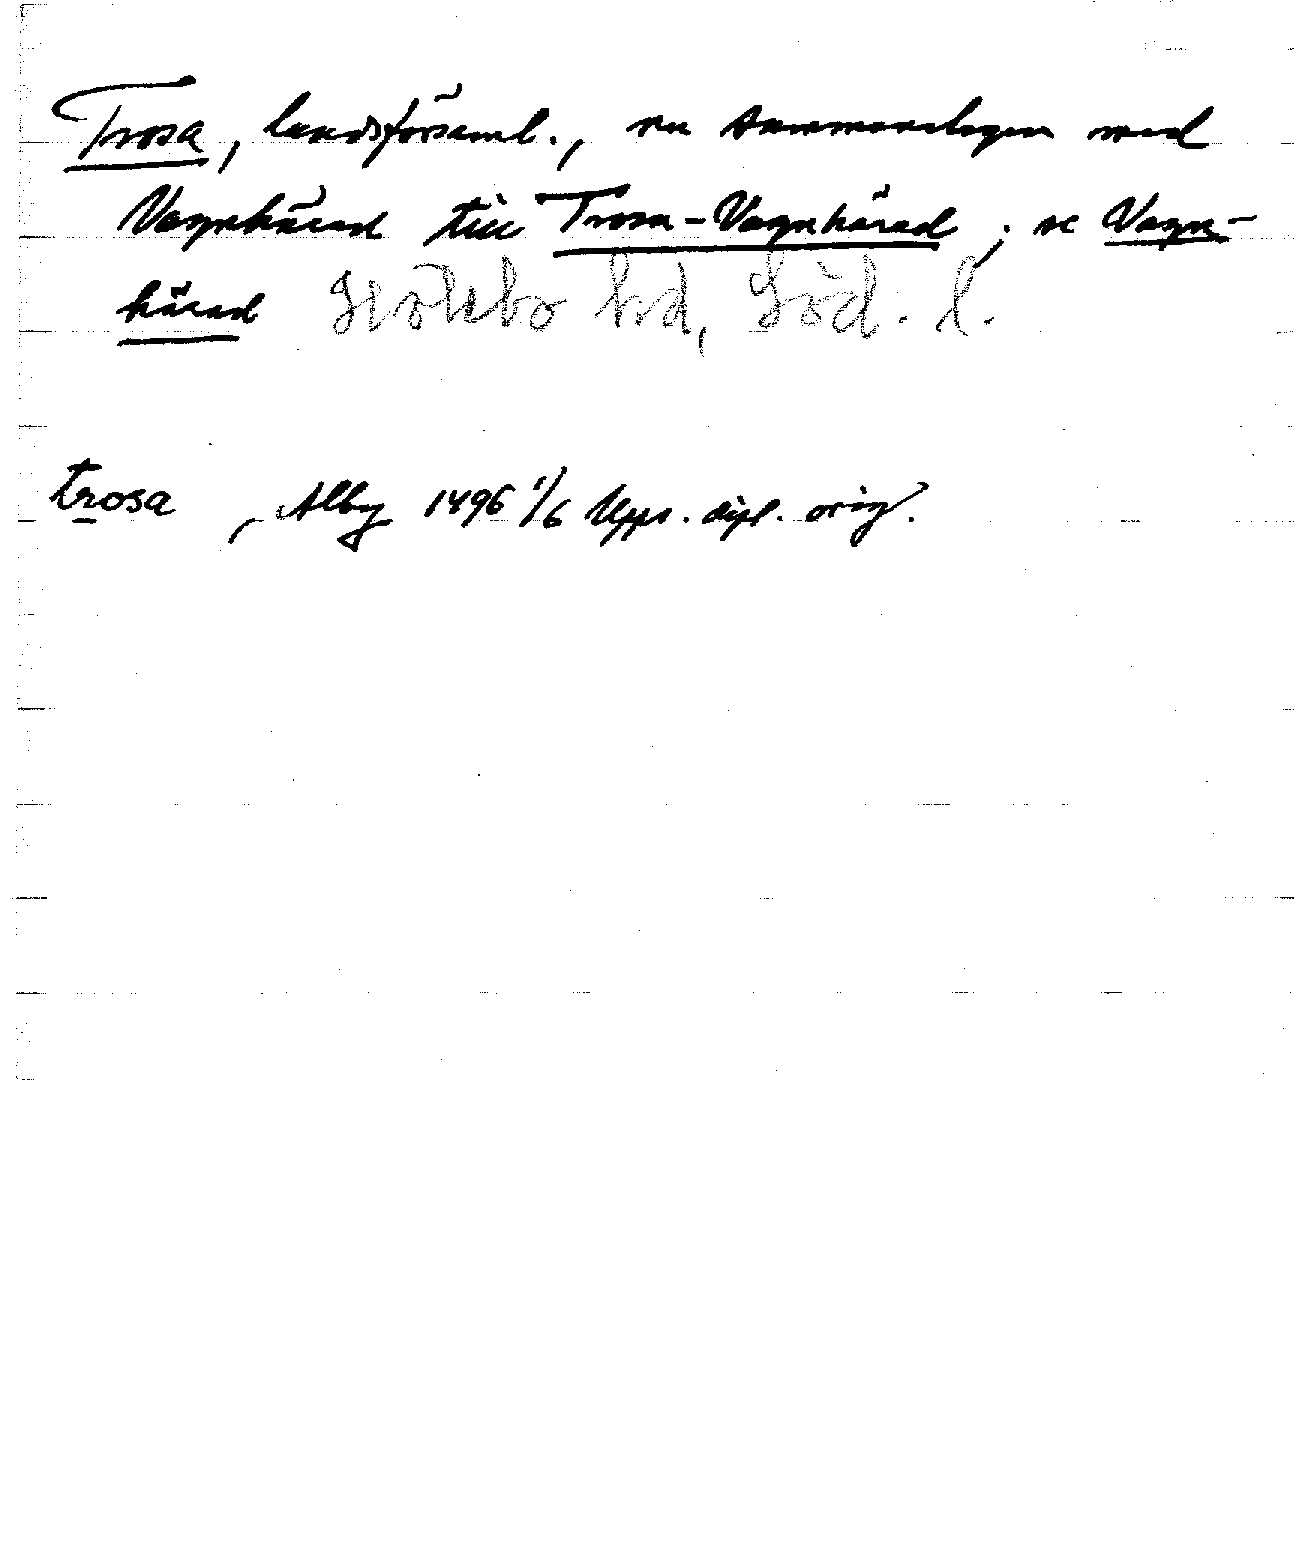 Trosa, landsförsaml., nu sammanslagen med
Vagnhärad till Trosa-Vagnhärad; se Vagn-
härad Hölebo hd, Söd. l.
trosa, Alby 1496 1/6 Upps. dipl. orig.